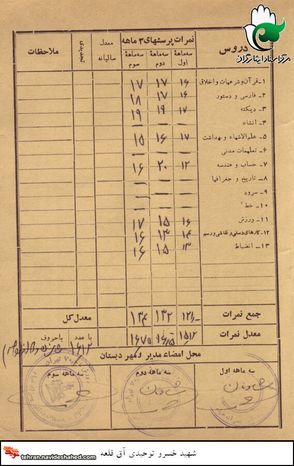 مرکز اسناد ایثارگران
دروس
نمرات پرسشهای ۳ ماهه
سه ماهه اول
سه ماهه دوم
سه ماهه سوم
معدل سالیانه
تجدیدی
ملاحظات
۱- قرآن و شرعیات و اخلاق ۱۶ ۱۷ ۱۷
۲- فارسی و دستور ۱۶ ۱۷ ۱۸
۳- دیکته ۱۷ ۱۹ ۱۹
۴- انشاء
۵- علم‌الاشیاء و بهداشت ۱۷ ۱۶ ۱۵
۶- تعلیمات مدنی
۷- حساب و هندسه ۱۲ ۲۰ ۱۶
۸- تاریخ و جغرافیا
۹- سرود
۱۰- خط
۱۱- ورزش ۱۶ ۱۵ ۱۷
۱۲- کارهای دستی و نقاشی و رسم ۱۳ ۱۴ ۱۶
۱۳- انضباط ۱۳ ۱۵ ۱۶
جمع نمرات ۱۳۲ ۱۳۴
معدل کل
معدل نمرات
با عدد باحروف
محل امضاء مدیر و مهر دبستان
سه ماهه اول
سه ماهه دوم
سه ماهه سوم
شهید خسرو توحیدی آق قلعه
tehran.navideshahed.com